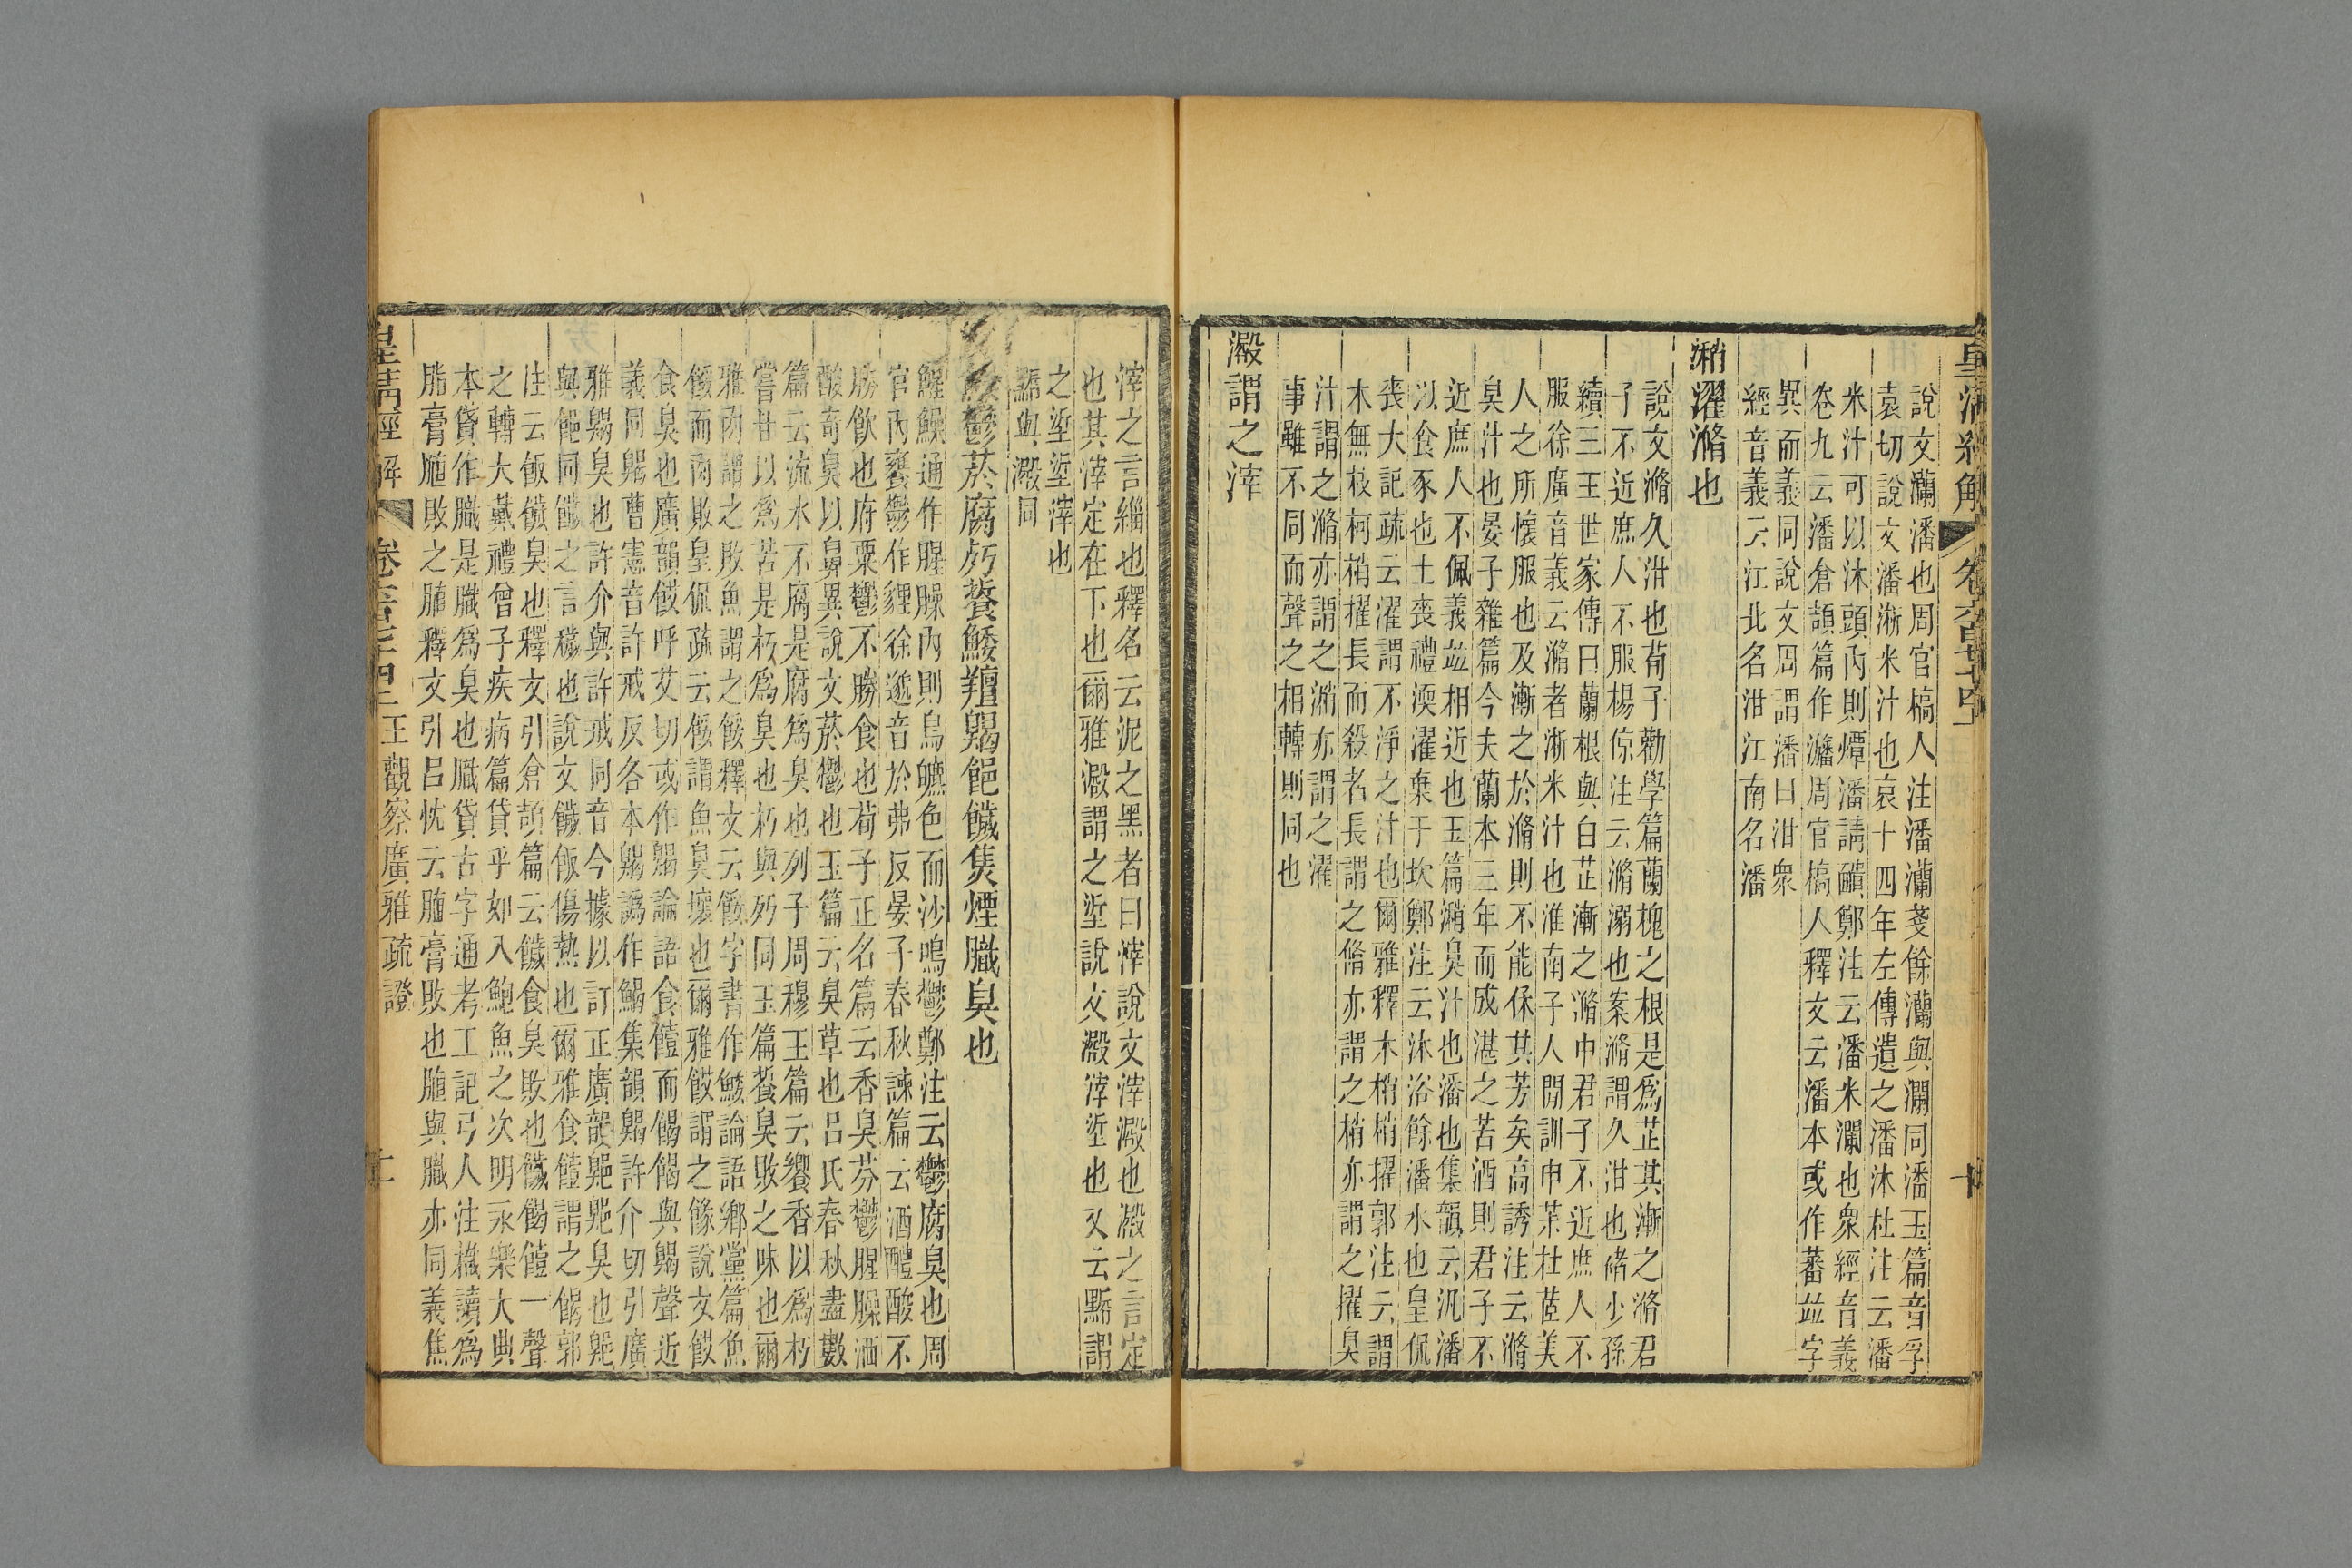 皇清經解
說文瀾潘也周官槁人注潘灡戔餘灡與瀾同潘玉篇音孚
袁切說文潘淅米汁也哀十四年左傳遺之潘沐杜注云潘
米汁可以沐頭內則燂潘請靧鄭注云潘米瀾也眾經音義
卷九云潘倉頡篇作瀋周官槁人釋文云潘本或作蕃竝字
異而義同說文周謂潘曰泔眾
經音義云江北名泔江南名潘
潲濯滫也
說文滫久泔也荀子勸學篇蘭槐之根是爲芷其漸之滫君
子不近庶人不服楊倞注云滫溺也案滫謂久泔也禇少孫
續三王世家傳曰蘭根與白芷漸之滫中君子不近庶人不
服徐廣音義云滫者淅米汁也淮南子人閒訓申茮杜茝美
人之所懷服也及漸之於滫則不能保其芳矣高誘注云滫
臭汁也晏子雜篇今夫蘭本三年而成湛之苦酒則君子不
近庶人不佩義竝相近也玉篇潲臭汁也潘也集韻云汎潘
以食豕也士喪禮渜濯棄于坎鄭注云沐浴餘潘水也皇侃
喪大記疏云濯謂不淨之汁也爾雅釋木梢梢擢郭注云謂
木無枝柯梢擢長而殺者長謂之脩亦謂之梢亦謂之擢臭
汁謂之滫亦謂之潲亦謂之濯
事雖不同而聲之相轉則同也
澱謂之滓
滓之言緇也釋名云泥之黑者曰滓說文滓澱也澱之言定
也其滓定在下也爾雅澱謂之垽說文澱滓垽也又云黰謂
之垽垽滓也
黰與澱同
鬱菸腐㱙餥鯘羶䬶䭇饖隻煙膱臭也
鯹鱢通作腥臊內則鳥皫色而沙鳴鬱鄭注云鬱腐臭也周
官內饔鬱作貍徐邈音於弗反晏子春秋諫篇云酒醴酸不
勝飲也府粟鬱不勝食也荀子正名篇云香臭芬鬱腥臊洒
酸奇臭以鼻異說文菸鬱也玉篇云臭草也呂氏春秋盡數
篇云流水不腐是腐爲臭也列子周穆王篇云饗香以爲朽
嘗甘以爲苦是朽爲臭也朽與㱙同玉篇餥臭敗之味也爾
雅肉謂之敗魚謂之餒釋文云餒字書作鮾論語鄉黨篇魚
餒而肉敗皇侃疏云餒謂魚臭壞也爾雅餀謂之餯說文餀
食臭也廣韻餀呼艾切或作䬶論語食饐而餲餲與䬶聲近
義同䬶曹憲音許戒反各本䬶譌作鰨集韻䬶許介切引廣
雅䬶臭也許介與許戒同音今據以訂正廣韻䭇䭇臭也䭇
與䭇同饖之言穢也說文饖飯傷熱也爾雅食饐謂之餲郭
注云飯饖臭也釋文引倉頡篇云饖食臭敗也饖餲饐一聲
之轉大戴禮曾子疾病篇貸乎如入鮑魚之次明永樂大典
本貸作膱是膱爲臭也膱貸古字通考工記弓人注樴讀爲
脂膏䐈敗之䐈釋文引呂忱云䐈膏敗也䐈與膱亦同義焦
皇清經解
王觀察廣雅疏證